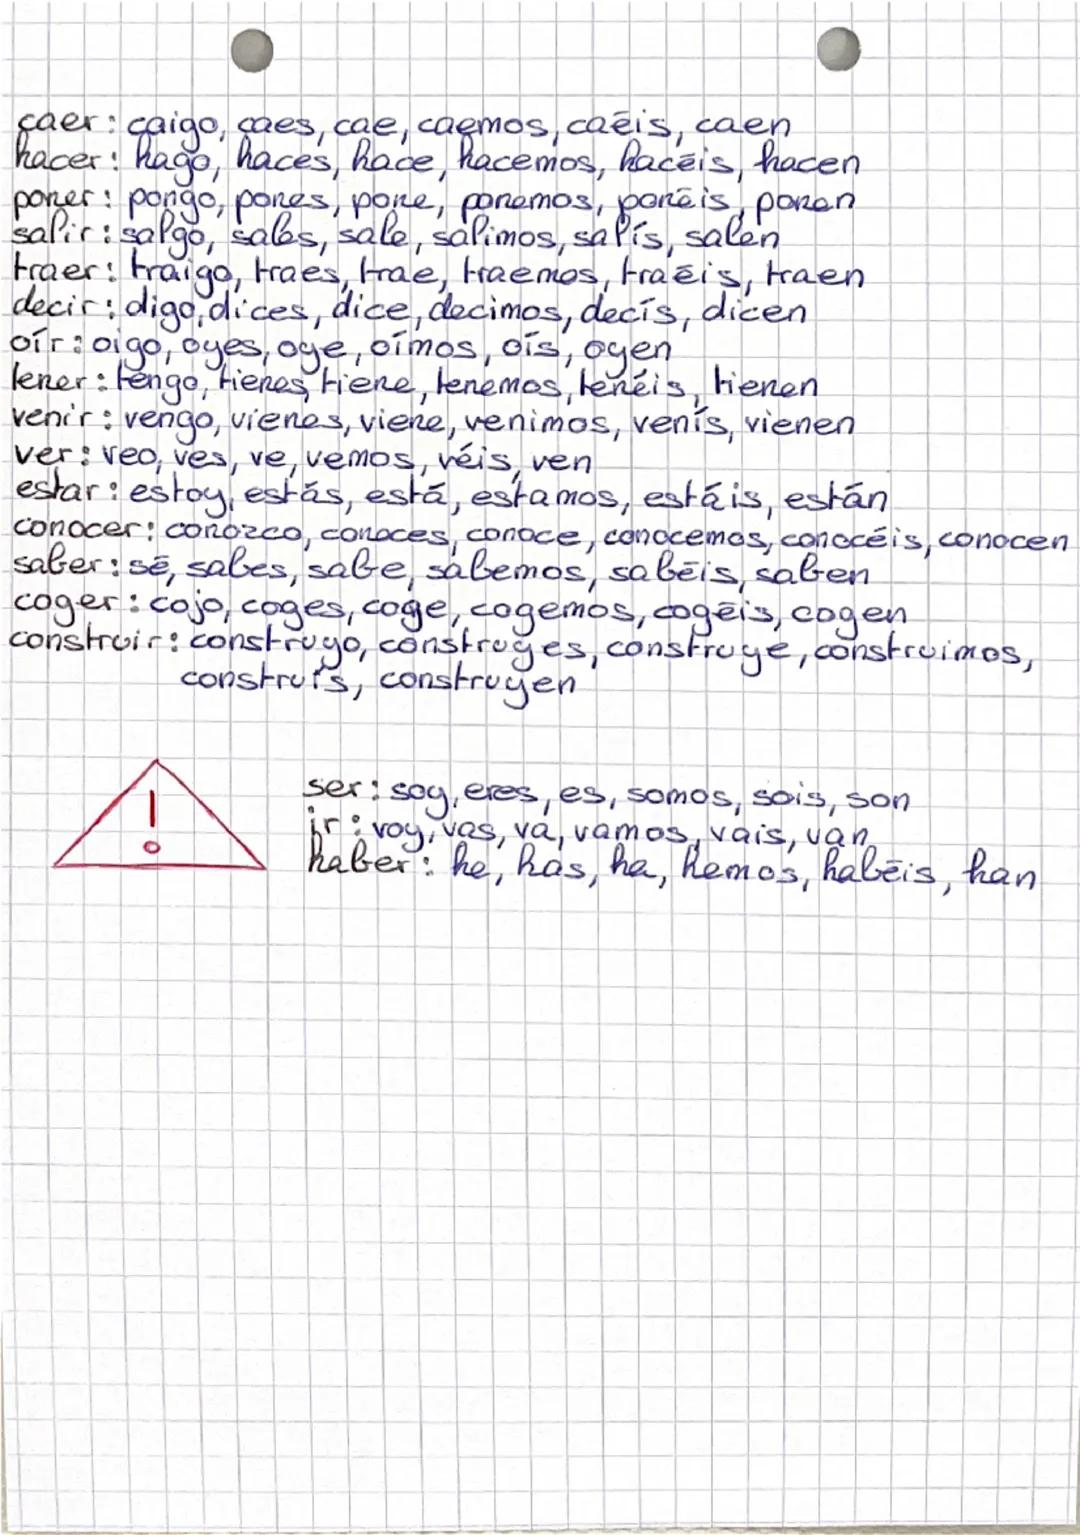 caer: caigo, caes, cae, caemos, caéis, caen
hacer: hago, haces, hace, hacemos, hacéis, hacen
poner: pongo, pones, pone, ponemos, ponéis, ponen
salir: salgo, sales, sale, salimos, salís, salen
traer: traigo, traes, trae, traemos, traéis, traen
decir: digo, dices, dice, decimos, decís, dicen
oír: oigo, oyes, oye, oímos, oís, oyen
tener: tengo, tienes, tiene, tenemos, tenéis, tienen
venir: vengo, vienes, viene, venimos, venís, vienen
ver: veo, ves, ve, vemos, véis, ven
estar: estoy, estás, está, estamos, estáis, están
conocer: conozco, conoces, conoce, conocemos, conocéis, conocen
saber: sé, sabes, sabe, sabemos, sabéis, saben
coger: cojo, coges, coge, cogemos, cogéis, cogen
construir: construyo, construyes, construye, construimos,
construís, construyen
!
ser: soy, eres, es, somos, sois, son
ir: voy, vas, va, vamos, vais, van
haber: he, has, ha, hemos, habéis, han